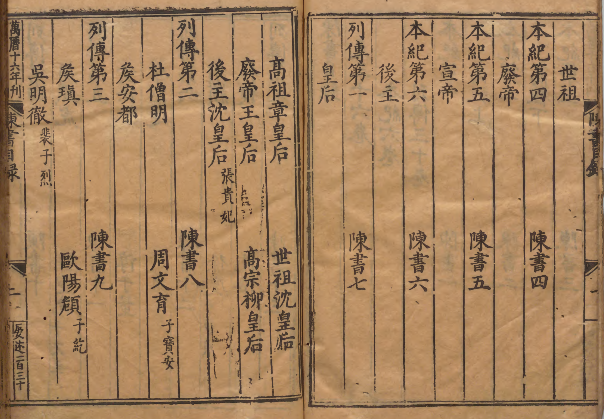 陳書目錄 一
世祖
本紀第四 陳書四
廢帝
本紀第五 陳書五
宣帝
本紀第六 陳書六
後主
列傳第一 陳書七
皇后
髙祖章皇后 世祖沈皇后
廢帝王皇后 髙宗柳皇后
後主沈皇后 張貴妃
列傳第二 陳書八
杜僧明 周文育 子寶安
侯安都
列傳第三 陳書九
侯瑱 歐陽頠 子紇
吳明徹 裴子烈
萬曆十六年刊 陳書目錄 二 二百三十